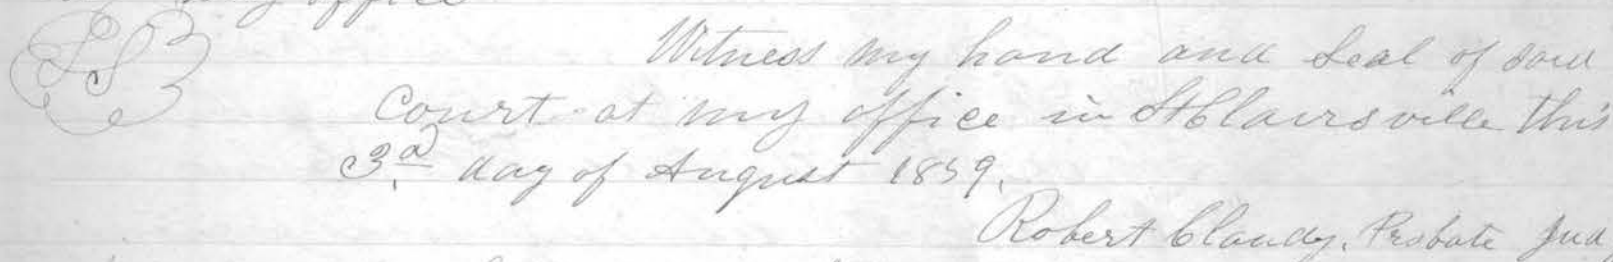 my office
L S
Witness my hand and Seal of said
Court at my office in St Clairsville this
3d day of August 1859.
Robert Clandy, Probate Jud